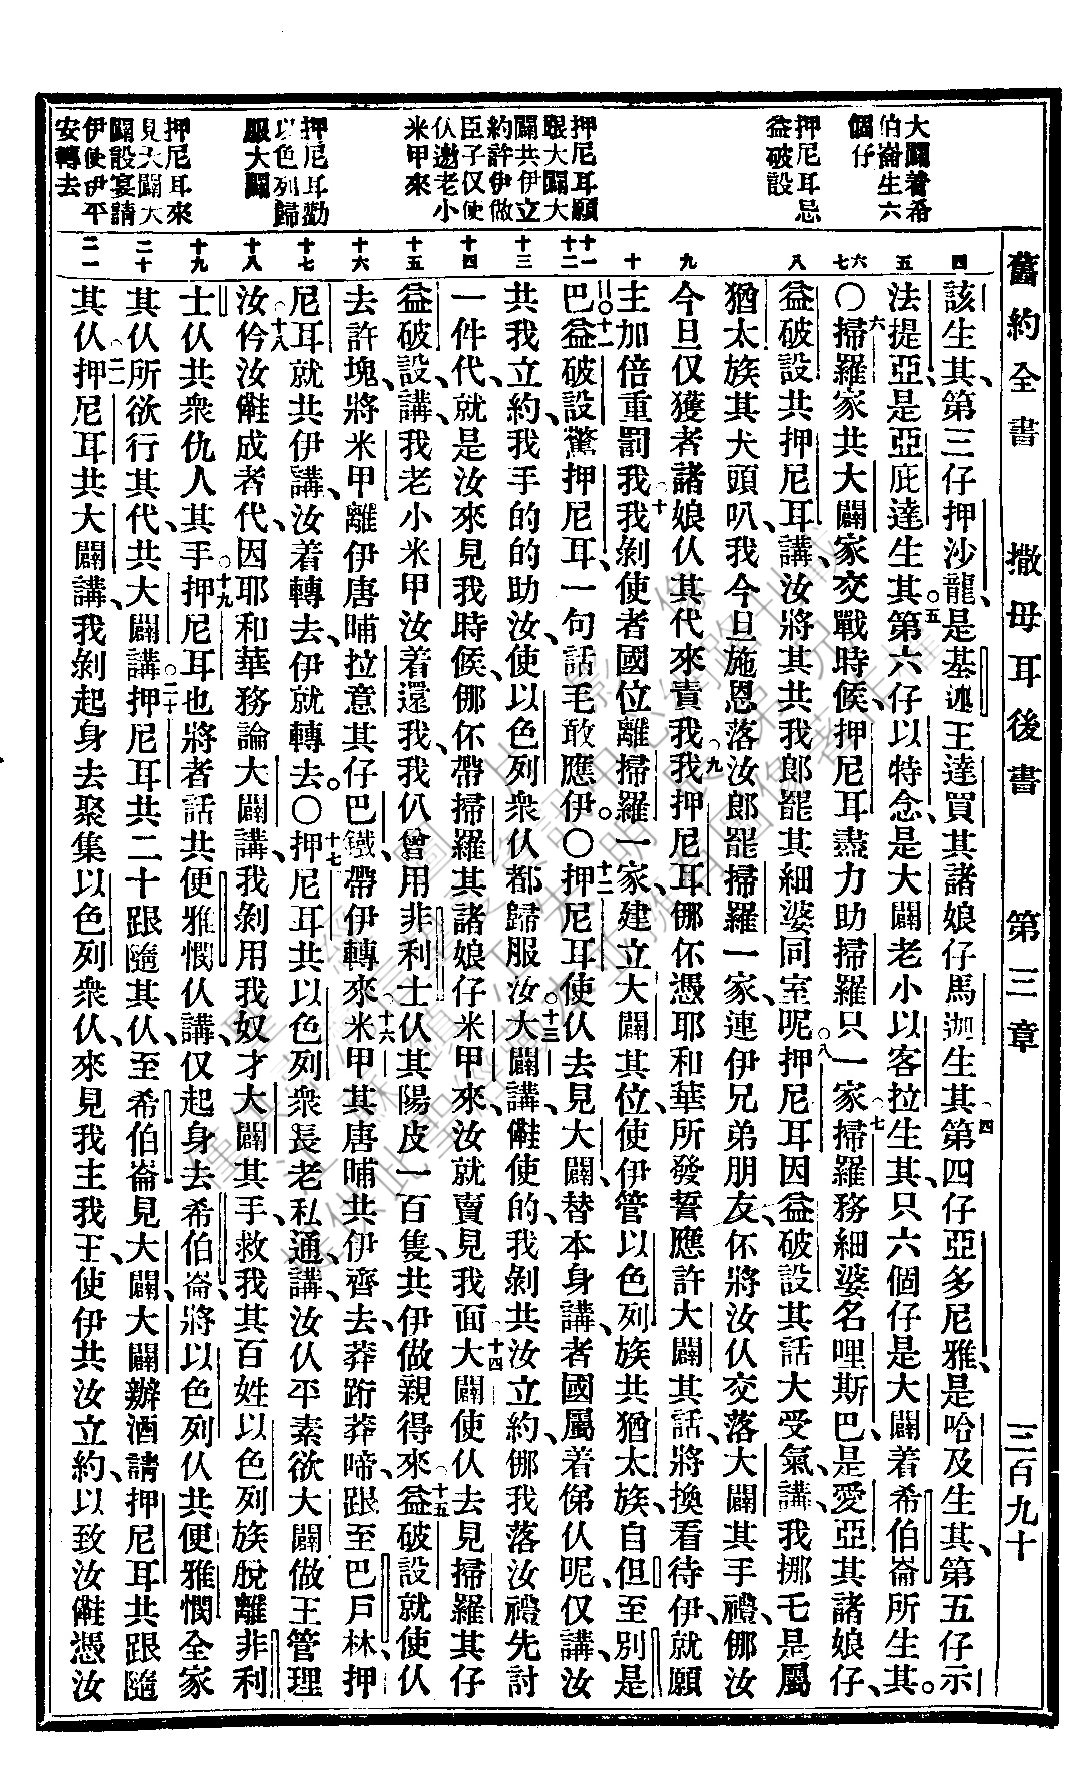 舊約全書 撒母耳後書 第三章 三百九十
大闢着希
伯崙生六
個仔
押尼耳忌
益破設
押尼耳願
跟大闢大
闢共伊立
約許伊做
臣子仅使
仈邀老小
米甲來
押尼耳勸
以色列歸
服大闢
押尼耳來
見大闢大
闢設宴請
伊使伊平
安轉去
四 五 六 七 八 九 十 十一 十二 十三 十四 十五 十六 十七 十八 十九 二十 二一
該生其、第三仔押沙龍、是基述王達買其諸娘仔馬迦生其、四第四仔亞多尼雅、是哈及生其、第五仔示
法提亞、是亞庇達生其。五第六仔以特念、是大闢老小以客拉生其、只六個仔是大闢着希伯崙所生其。
〇六掃羅家共大闢家交戰時候、押尼耳盡力助掃羅只一家、七掃羅務細婆名哩斯巴、是愛亞其諸娘仔、
益破設共押尼耳講、汝將其共我郎罷其細婆同室呢、八押尼耳因益破設其話大受氣、講、我挪乇是屬
猶太族其犬頭叭、我今旦施恩落汝郎罷掃羅一家、連伊兄弟朋友、伓將汝仈交落大闢其手禮、㑚汝
今旦仅獲者諸娘仈其代來責我、九我押尼耳㑚伓憑耶和華所發誓應許大闢其話、將換看待伊、就願
主加倍重罰我、十我剝使者國位離掃羅一家、建立大闢其位、使伊管以色列族共猶太族、自但至別是
巴。十一益破設驚押尼耳、一句話毛敢應伊。〇十二押尼耳使仈去見大闢、替本身講、者國屬着俤仈呢、仅講、汝
共我立約、我手的的助汝、使以色列衆仈都歸服汝。十三大闢講、儺使的、我剝共汝立約、㑚我落汝禮先討
一件代、就是汝來見我時候、㑚伓帶掃羅其諸娘仔米甲來、汝就賣見我面、十四大闢使仈去見掃羅其仔
益破設、講、我老小米甲汝着還我、我仈曾用非利士仈其陽皮一百隻、共伊做親得來、十五益破設就使仈
去許塊、將米甲離伊唐晡拉意其仔。巴鐵、帶伊轉來、十六米甲其唐晡共伊齊去、莽跲莽啼、跟至巴戶林、押
尼耳就共伊講、汝着轉去、伊就轉去。〇十七押尼耳共以色列衆長老私通、講、汝仈平素欲大闢做王管理
汝、十八仱汝儺成者代、因耶和華務論大闢講、我剝用我奴才大闢其手、救我其百姓以色列族脫離非利
士仈共衆仇人其手。十九押尼耳也將者話共便雅憫仈講、仅起身去希伯崙、將以色列仈共便雅憫全家
其仈所欲行其代、共大闢講。二十押尼耳共二十跟隨其仈、至希伯崙見大闢、大闢辦酒請押尼耳共跟隨
其仈、二一押尼耳共大闢講、我剝起身去聚集以色列衆仈、來見我主我王、使伊共汝立約、以致汝儺憑汝